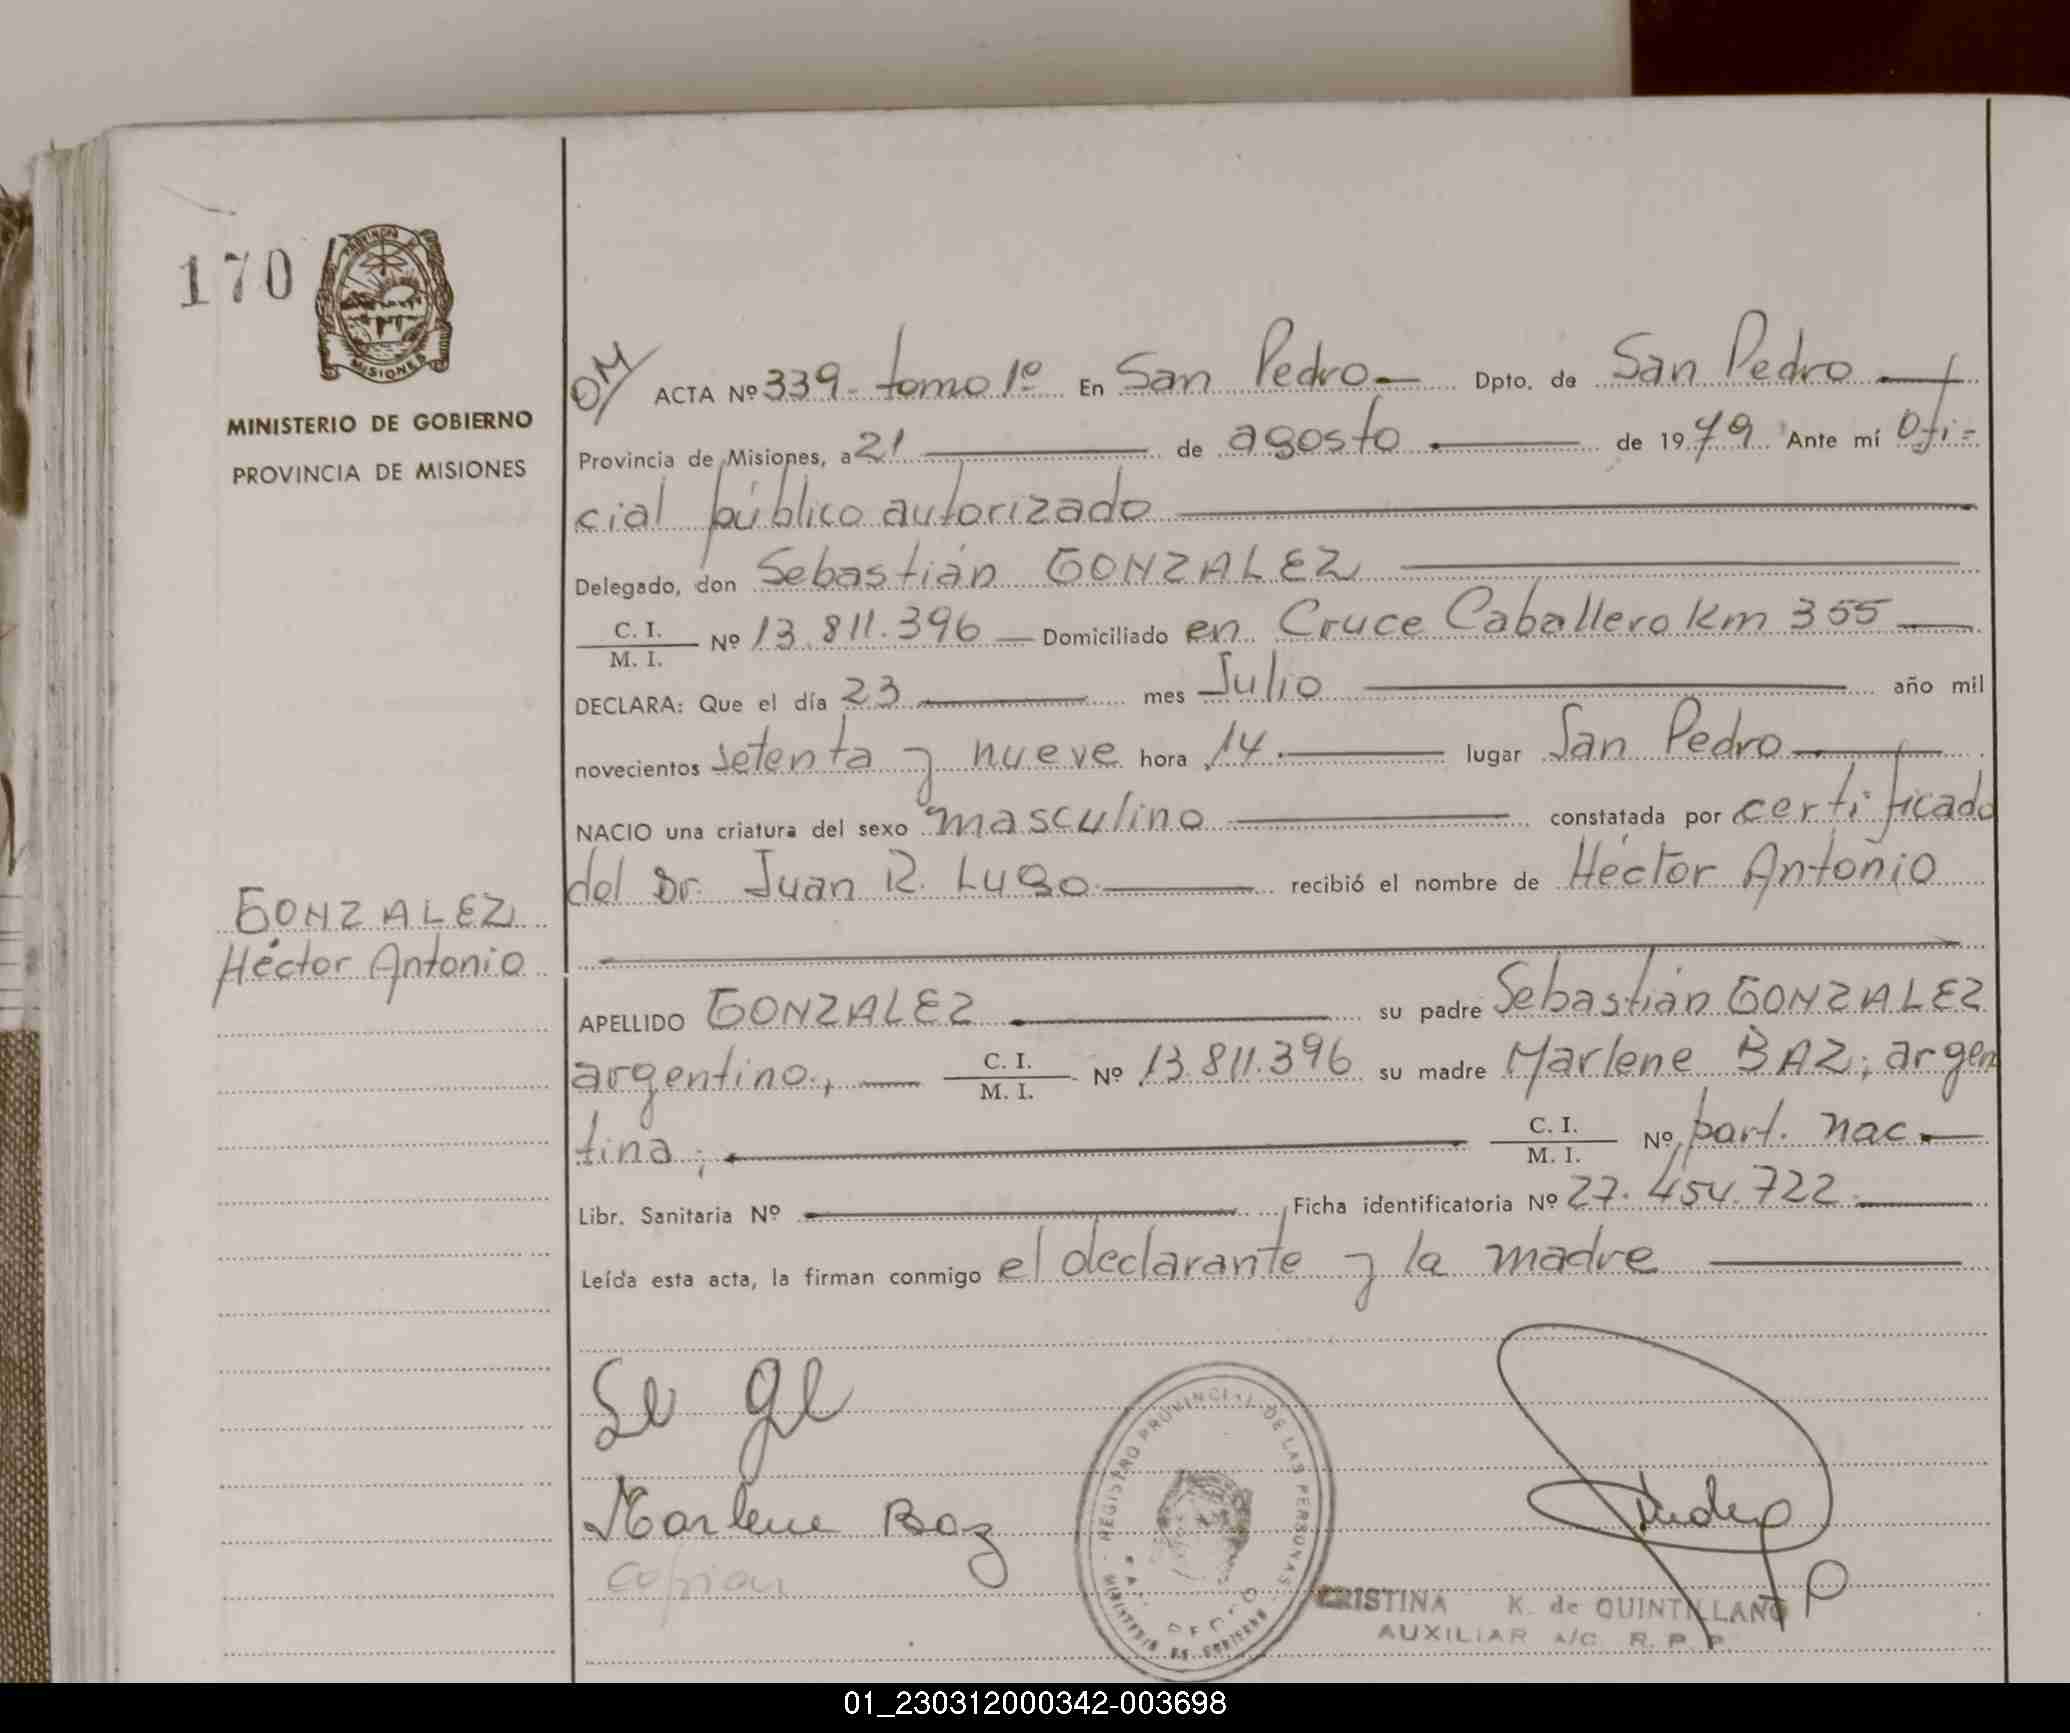 170
PROVINCIA DE
MISIONES
MINISTERIO DE GOBIERNO
PROVINCIA DE MISIONES
GONZALEZ
Héctor Antonio
OM ACTA Nº 339 - tomo 1º En San Pedro Dpto. de San Pedro
Provincia de Misiones, a 21 de agosto de 1979 Ante mí Ofi=
cial público autorizado
Delegado, don Sebastián GONZALEZ
C. I.
M. I. Nº 13.811.396 Domiciliado en Cruce Caballero Km 355
DECLARA: Que el día 23 mes Julio año mil
novecientos setenta y nueve hora 14 lugar San Pedro
NACIO una criatura del sexo masculino constatada por certificado
del Dr. Juan R. Lugo recibió el nombre de Héctor Antonio
APELLIDO GONZALEZ su padre Sebastián GONZALEZ
argentino, C. I.
M. I. Nº 13.811.396 su madre Marlene BAZ; argen
tina; C. I.
M. I. Nº part. nac.
Libr. Sanitaria Nº Ficha identificatoria Nº 27.454.722
Leída esta acta, la firman conmigo el declarante y la madre
Marlene Baz
copian
REGISTRO PROVINCIAL DE LAS PERSONAS
MINISTERIO DE GOBIERNO
CRISTINA K. de QUINTILLANO
AUXILIAR A/C. R. P. P.
01_230312000342-003698